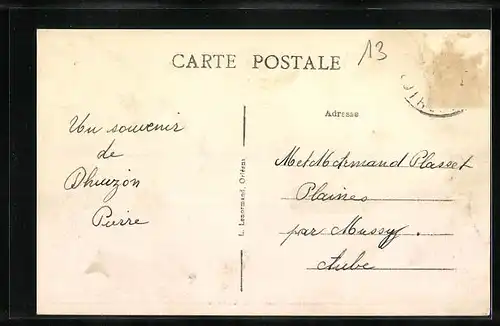 CARTE POSTALE
13
Adresse
Un souvenir
de
Dhuizon
Pierre
L. Lenormand, Orléans
M et Mme Armand Plasset
Plaines
par Mussy.
Aube